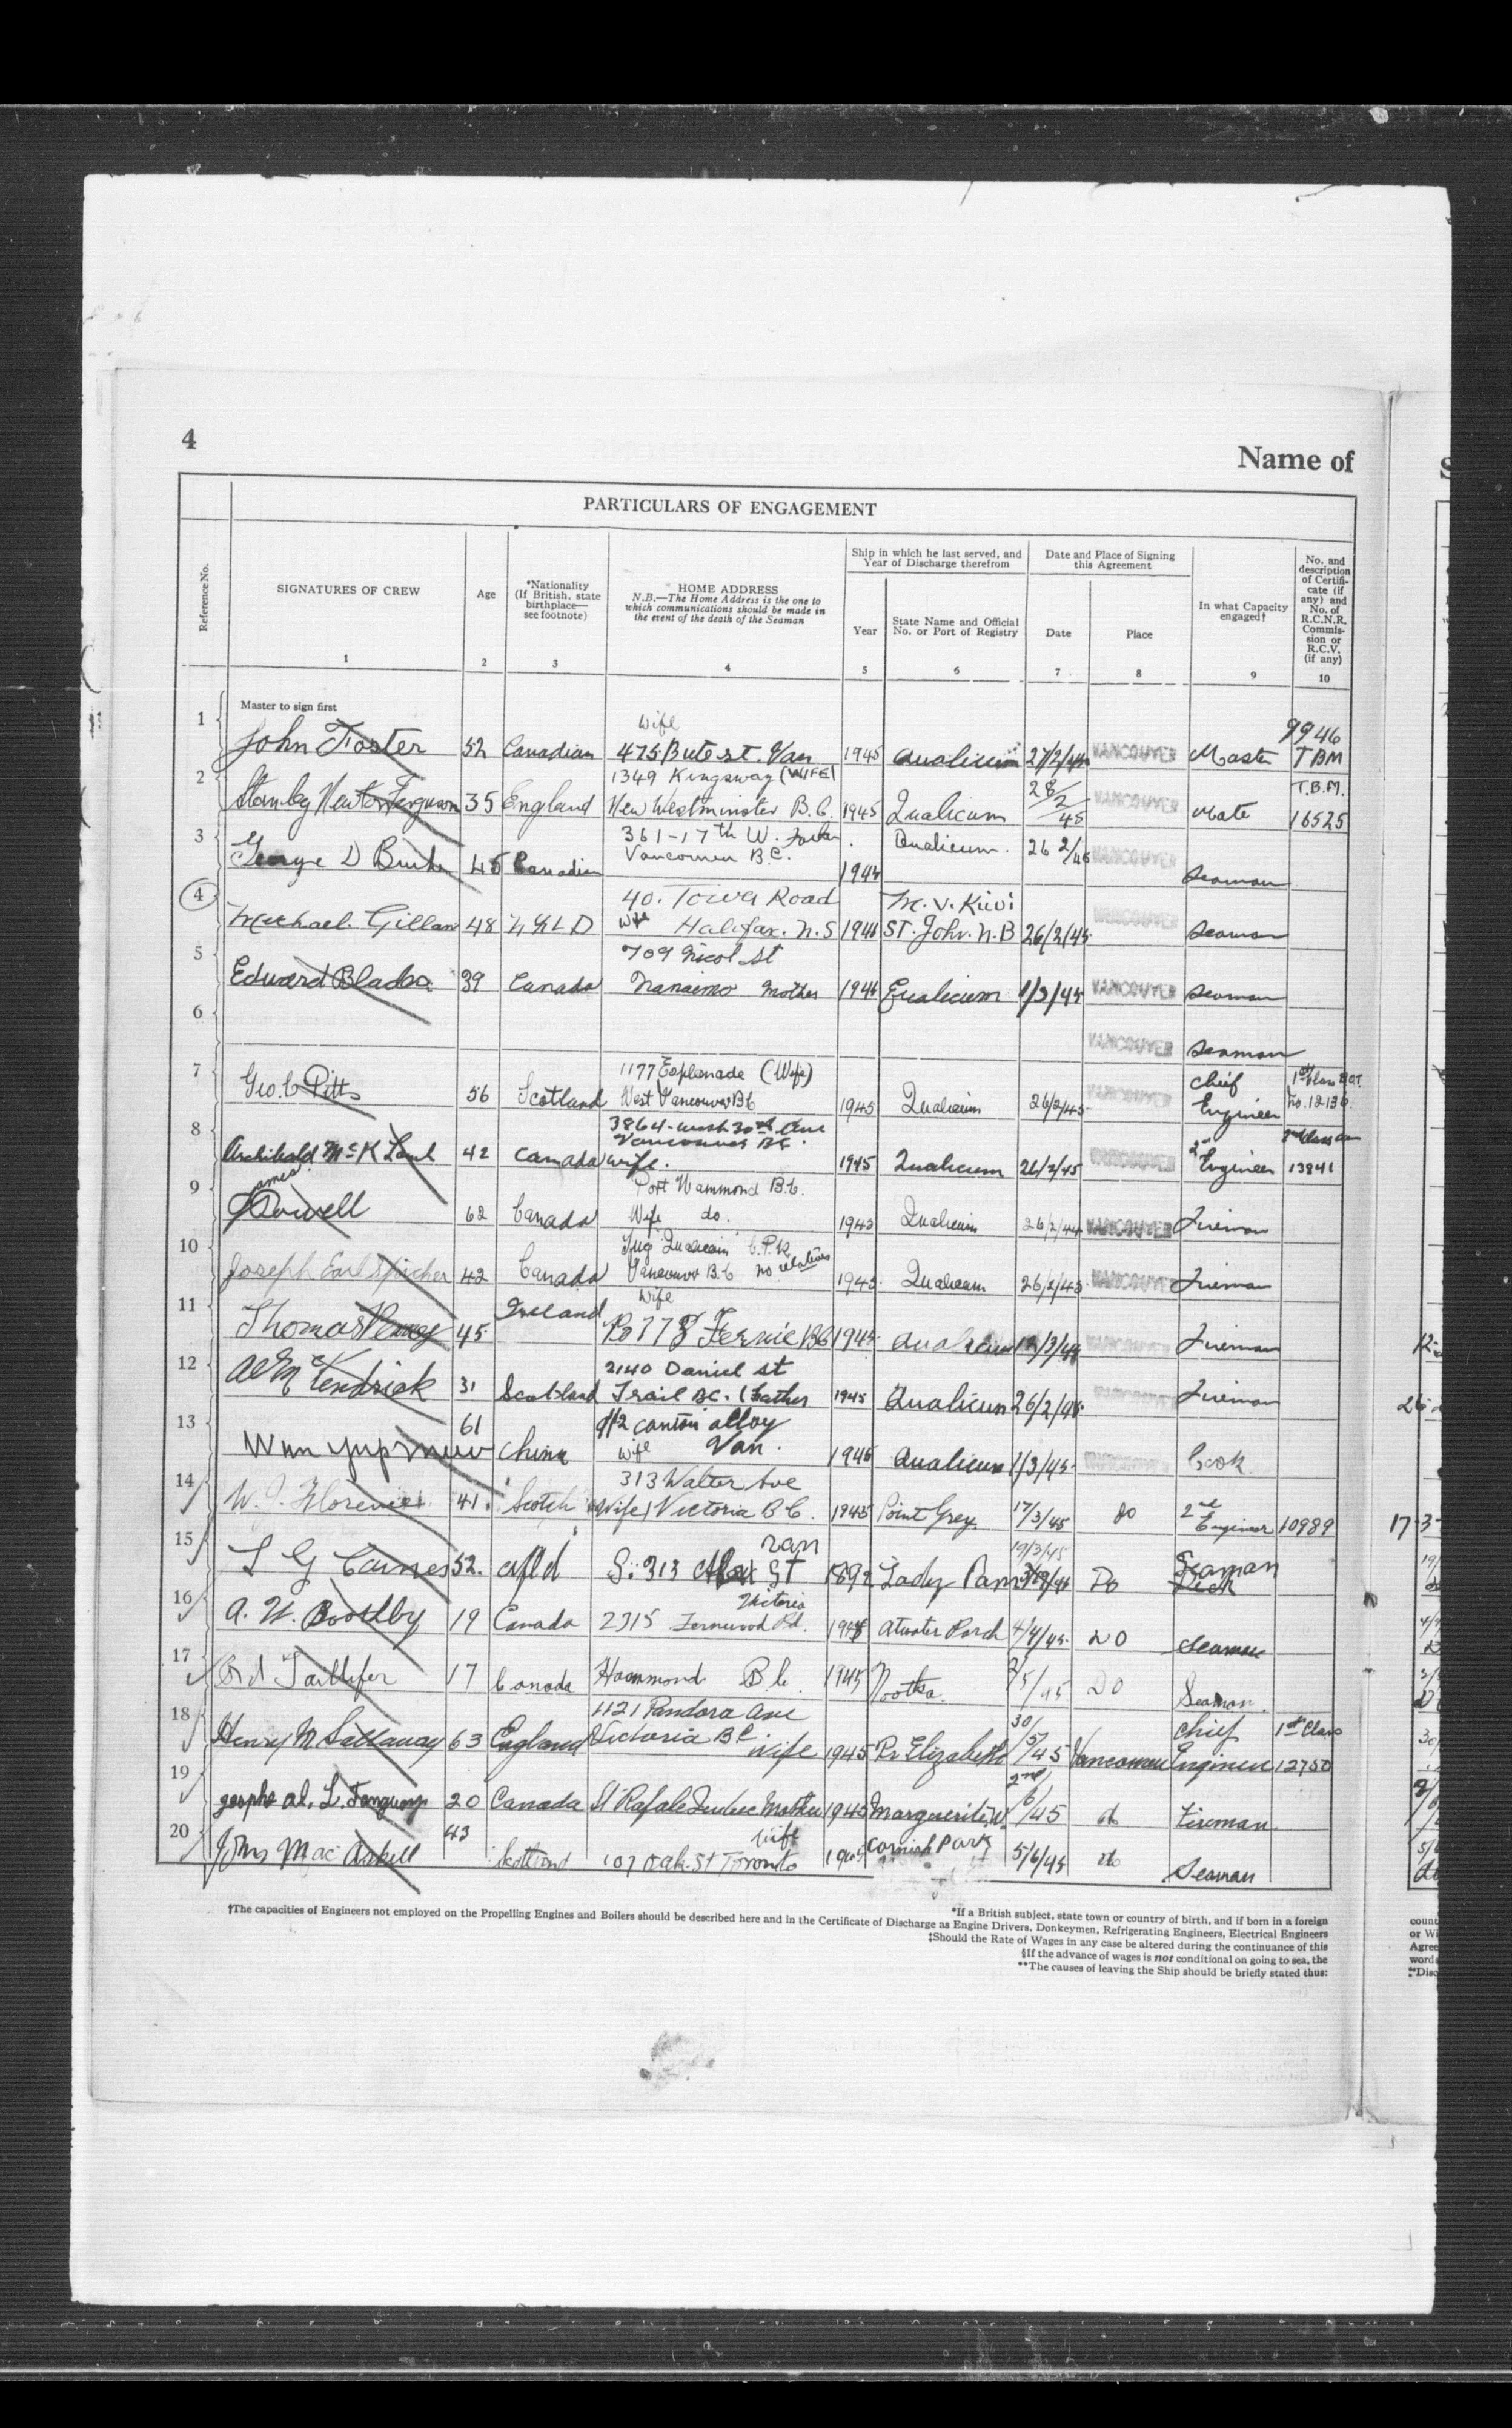 4
Name of
PARTICULARS OF ENGAGEMENT
Reference No.
SIGNATURES OF CREW
1
Age
2
*Nationality
(If British, state
birthplace—
see footnote)
3
HOME ADDRESS
N.B.—The Home Address is the one to
which communications should be made in
the event of the death of the Seaman
4
Ship in which he last served, and
Year of Discharge therefrom
Year
5
State Name and Official
No. or Port of Registry
6
Date and Place of Signing
this Agreement
Date
7
Place
8
In what Capacity
engaged†
9
No. and
description
of Certifi-
cate (if
any) and
No. of
R.C.N.R.
Commis-
sion or
R.C.V.
(if any)
10
Master to sign first
wife
9946
1 John Foster 52 Canadian 475 Bute st. Van 1945 Qualicum 27/2/45 VANCOUVER Master TBM
1349 Kingsway (WIFE) 28/2/45 T.B.M.
2 Stanley Ferguson 35 England New Westminster B.C. 1945 Qualicum VANCOUVER Mate 16525
361-17th W.
3 George D Burke 45 Canadian Vancouver B.C. Qualicum 26 2/45 VANCOUVER Seaman
40. Towa Road M.V. Kiwi
4 Michael Gillan 48 NFLD wife Halifax. N.S ST. John. N.B 26/2/45 VANCOUVER Seaman
709 Nicol St
5 Edward 39 Canada Nanaimo Mother Qualicum 1/3/45 VANCOUVER Seaman
6 VANCOUVER Seaman
1177 Esplanade (Wife) Chief 1st Class
7 Geo. C Pitts 56 Scotland West Vancouver BC 1945 Qualicum 26/2/45 VANCOUVER Engineer No. 12136
3864-west 30th Ave
Vancouver BC. 2nd Class
8 Archibald McK Lamb 42 Canada wife. 1945 Qualicum 26/2/45 VANCOUVER 2nd Engineer 13841
Port Hammond B.C.
9 James Dowell 62 Canada Wife do. 1945 Qualicum VANCOUVER Fireman
Tug Qualicum C.P.R
10 Joseph Earl Spicher 42 Canada Vancouver B.C no relatives 1945 Qualicum 26/2/45 VANCOUVER Fireman
Wife
11 Thomas 45 Ireland Fernie BC 1945 Qualicum VANCOUVER Fireman
2140 Daniel st
12 McKendrick 31 Scotland Trail BC. (Father 1945 Qualicum 26/2/45 VANCOUVER Fireman
#2 canton alloy
13 Wun Yup 61 China wife Van. Qualicum 1/3/45 VANCOUVER Cook
313 Walter Ave
14 W. J. Florence 41 Scotch (Wife) Victoria B.C. 1945 Point Grey 17/3/45 do 2nd Engineer 10989
van 19/3/45
15 L G Carnes 52. nfld St Lady Pam Do Seaman
Victoria
16 A. W. Boothby 19 Canada 2315 Fernwood Rd. Atwater Park 4/4/45 DO Seaman
17 Taillefer 17 Canada Hammond B.C. 1945 Nootka 2/5/45 DO Seaman
1121 Pandora Ave Chief 1st Class
18 Henry M Sallaway 63 England Victoria BC wife 1945 Pr Elizabeth 30/5/45 Vancouver Engineer 12750
19 20 Canada St Rafale Quebec Mother 1945 Marguerite W. 2nd/6/45 do Fireman
Wife
20 John MacAskell 43 Scotland 107 Oak. St Toronto 1945 Cornish Park 5/6/45 do Seaman
*If a British subject, state town or country of birth, and if born in a foreign
†The capacities of Engineers not employed on the Propelling Engines and Boilers should be described here and in the Certificate of Discharge as Engine Drivers, Donkeymen, Refrigerating Engineers, Electrical Engineers
‡Should the Rate of Wages in any case be altered during the continuance of this
§If the advance of wages is not conditional on going to sea, the
**The causes of leaving the Ship should be briefly stated thus: